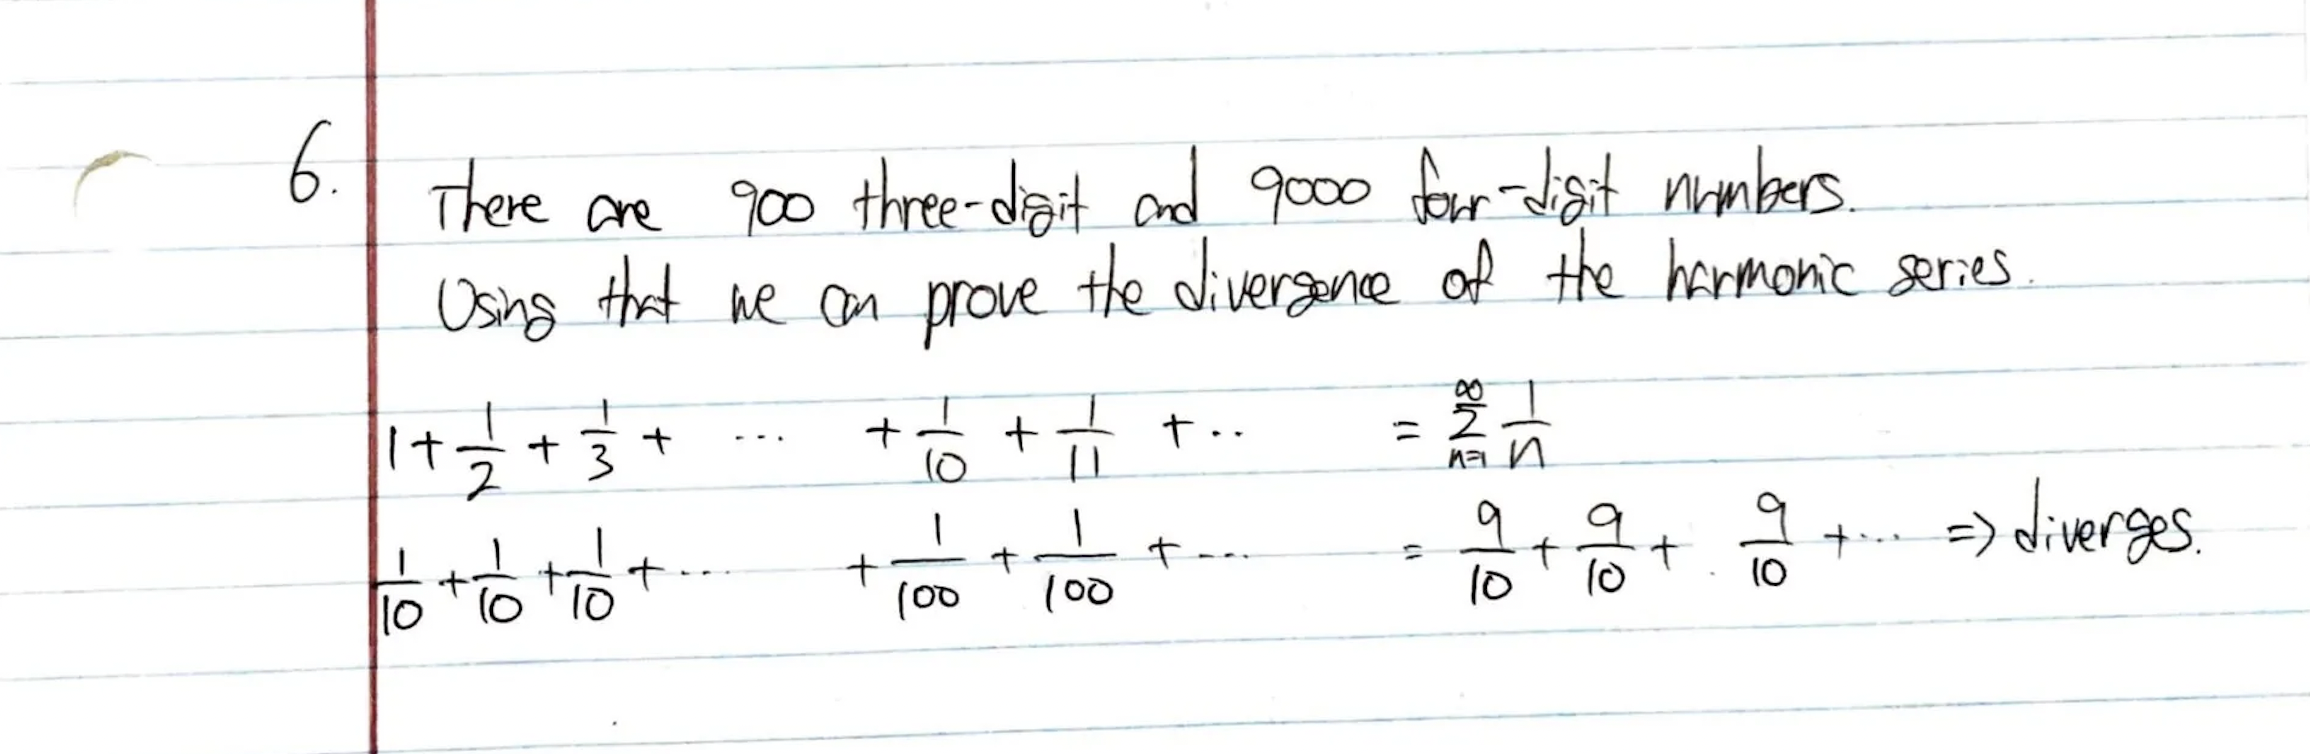 6. There are 900 three-digit and 9000 four-digit numbers.
Using that we can prove the divergence of the harmonic series.
1 + 1/2 + 1/3 + ... + 1/10 + 1/11 + .. = ∑_{n=1}^{∞} 1/n
1/10 + 1/10 + 1/10 + ... + 1/100 + 1/100 + ... = 9/10 + 9/10 + 9/10 + ... => diverges.